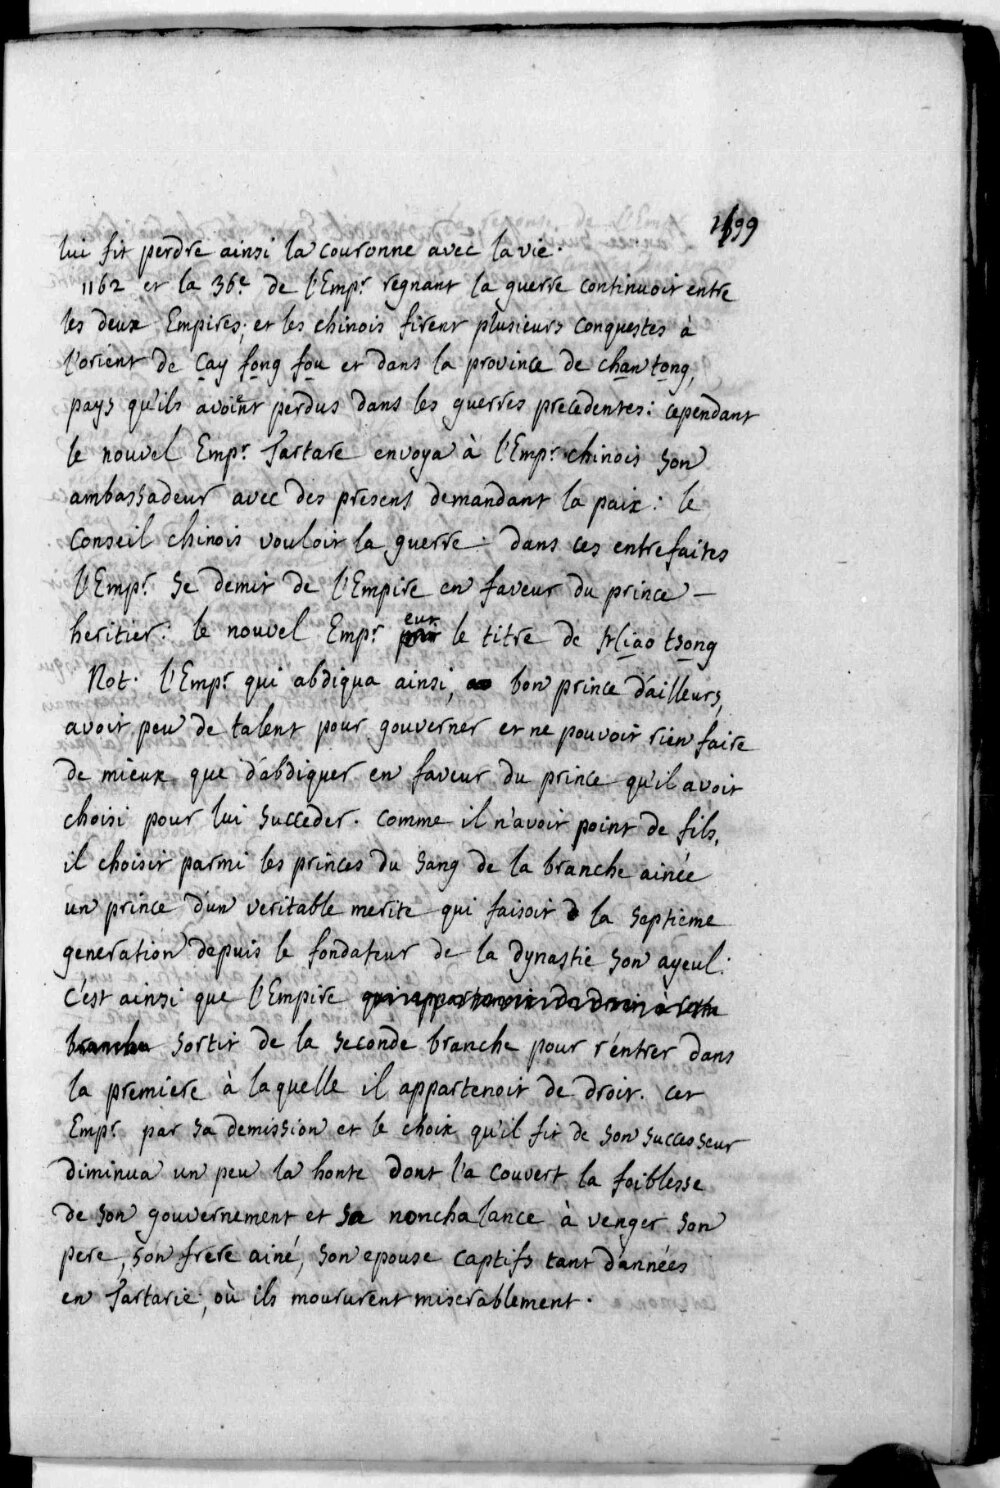 199
lui fit perdre ainsi la couronne avec la vie.
1162 et la 36e. de l'Empr. regnant la guerre continuoit entre
les deux Empires; et les chinois firent plusieurs conquestes à
l'orient de Cay fong fou et dans la province de chan tong,
pays qu'ils avoient perdus dans les guerres precedentes: cependant
le nouvel Empr. Tartare envoya à l'Empr. chinois son
ambassadeur avec des present demandant la paix: le
Conseil chinois vouloit la guerre: dans ces entrefaites
l'Empr. se demit de l'Empire en faveur du prince –
heritier: le nouvel Empr. eut le titre de hiao tsong
Not. l'Empr. qui abdiqua ainsi, bon prince d'ailleurs,
avoit peu de talent pour gouverner et ne pouvoit rien faire
de mieux que d'abdiquer en faveur du prince qu'il avoit
choisi pour lui succeder. comme il n'avoit point de fils,
il choisit parmi les princes du sang de la branche ainée
un prince d'un veritable merite qui faisoit la septieme
generation depuis le fondateur de la dynastie son ayeul:
c'est ainsi que l'Empire qui appartenoit de droit à cette
branche sortit de la seconde branche pour r'éntrer dans
la premiere à laquelle il appartenoit de droit. cet
Empr. par sa demission et le choix qu'il fit de son successeur
diminua un peu la honte dont l'a couvert la foiblesse
de son gouvernement et sa nonchalance à venger son
pere, son frere ainé, son epouse captifs tant d'années
en Tartarie, où ils moururent miserablement.